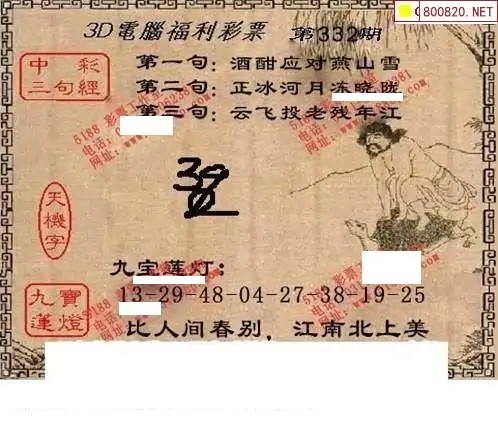 800820.NET
3D電腦福利彩票 第332期
中彩
三句經
第一句：酒酣应对燕山雪
第二句：正冰河月冻晓陇
第三句：云飞投老残年江
天機字
九宝莲灯：
九寶
蓮燈
13-29-48-04-27-38-19-25
比人间春别，江南北上美